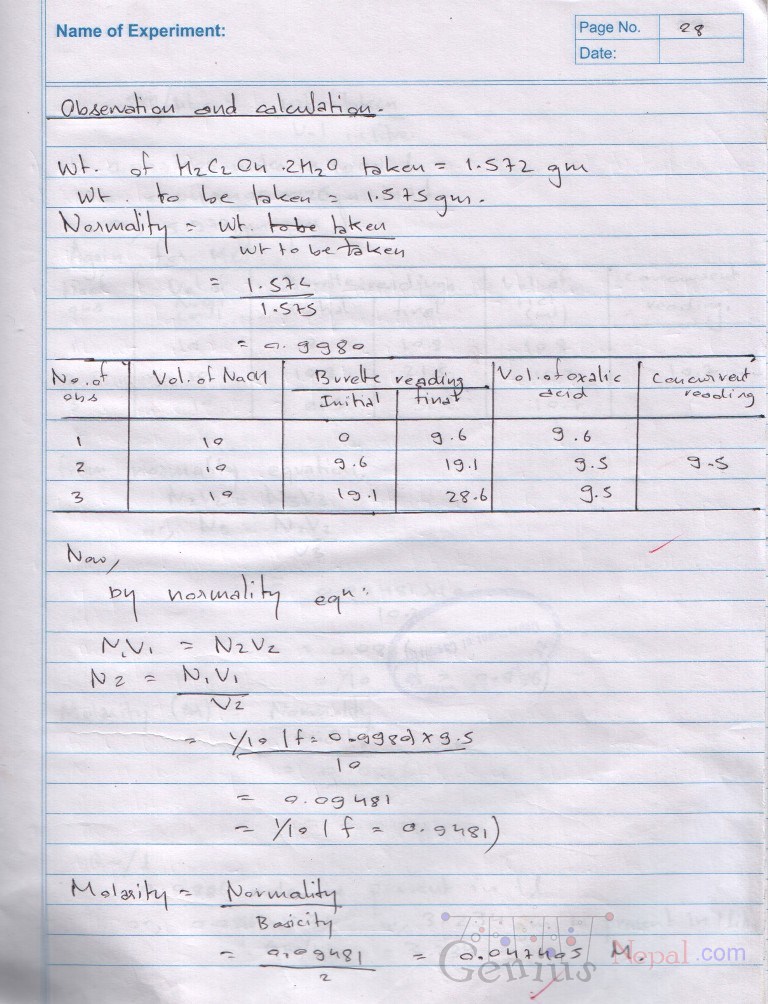 Name of Experiment:
Page No. 28
Date:
Observation and calculation.
Wt. of H2C2O4.2H2O taken = 1.572 gm
Wt. to be taken = 1.575 gm.
Normality = wt. to be taken
wt to be taken
= 1.572
1.575
= 0.9980
No. of obs | Vol. of NaOH | Burette reading | Vol. of oxalic acid | Concurrent reading
Initial | final
1 | 10 | 0 | 9.6 | 9.6
2 | 10 | 9.6 | 19.1 | 9.5 | 9.5
3 | 10 | 19.1 | 28.6 | 9.5
Now,
by normality eqn:
N1V1 = N2V2
N2 = N1V1
V2
= 1/10 (f = 0.9980) x 9.5
10
= 0.09481
= 1/10 (f = 0.9481)
Molarity = Normality
Basicity
= 0.09481 = 0.047405 M.
2
Genius Nepal.com